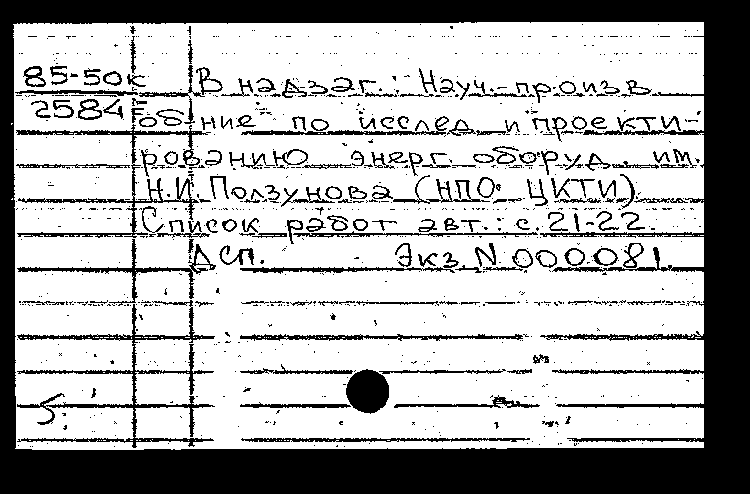 85-50к В надзаг.: Науч.-произв.
2584 об-ние по исслед. и проекти-
рованию энерг. оборуд. им.
И.И. Ползунова (НПО ЦКТИ)
Список работ авт.: с. 21-22.
ДСП. Экз. N 000081.